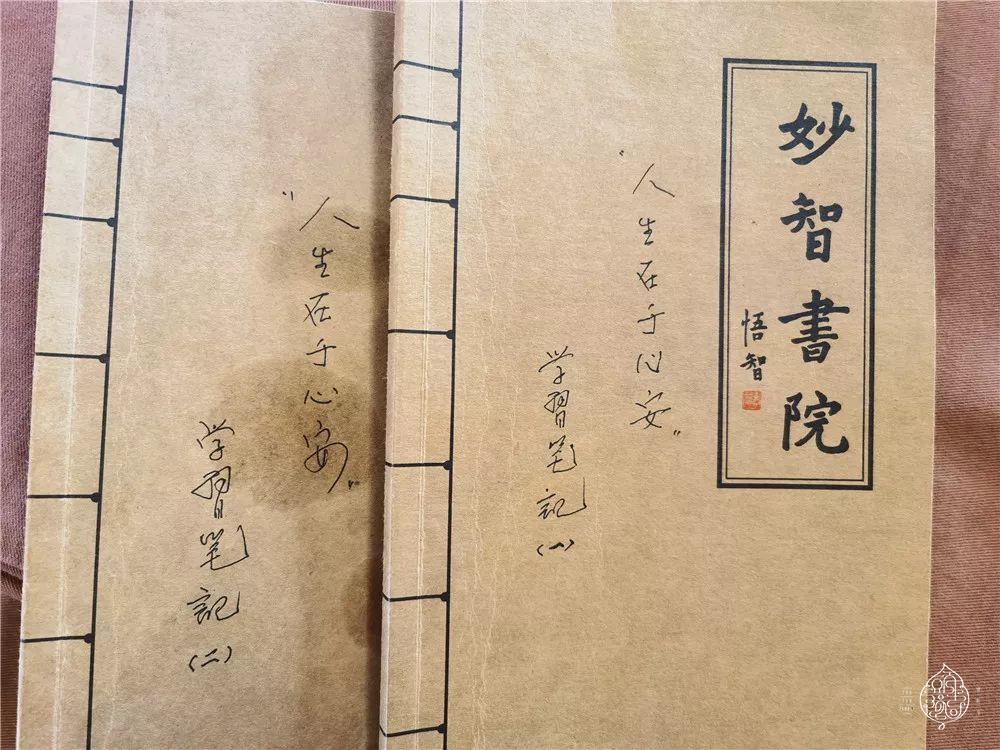 妙智書院
悟智
“人生在于心安”
学習笔記
(一)
“人生在于心安”
学習笔記
(二)